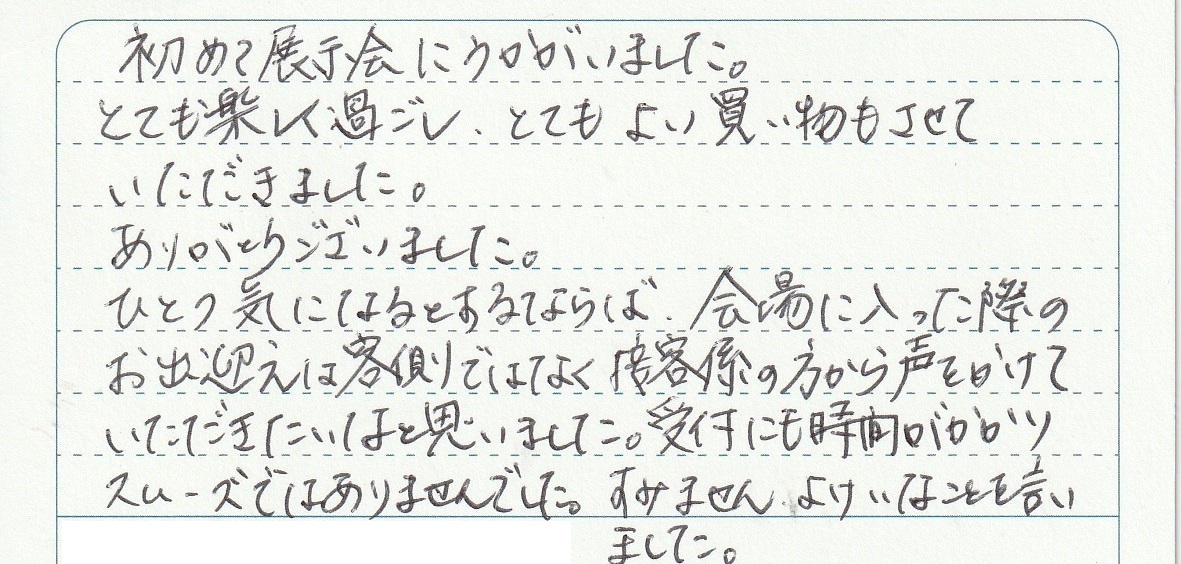 初めて展示会にうかがいました。
とても楽しく過ごし、とてもよい買い物もさせて
いただきました。
ありがとうございました。
ひとつ気になるとするならば、会場に入った際の
お出迎えは客側ではなく接客係の方から声をかけて
いただきたいなと思いました。受付にも時間がかかり
スムーズではありませんでした。すみません、よけいなことを言い
ました。